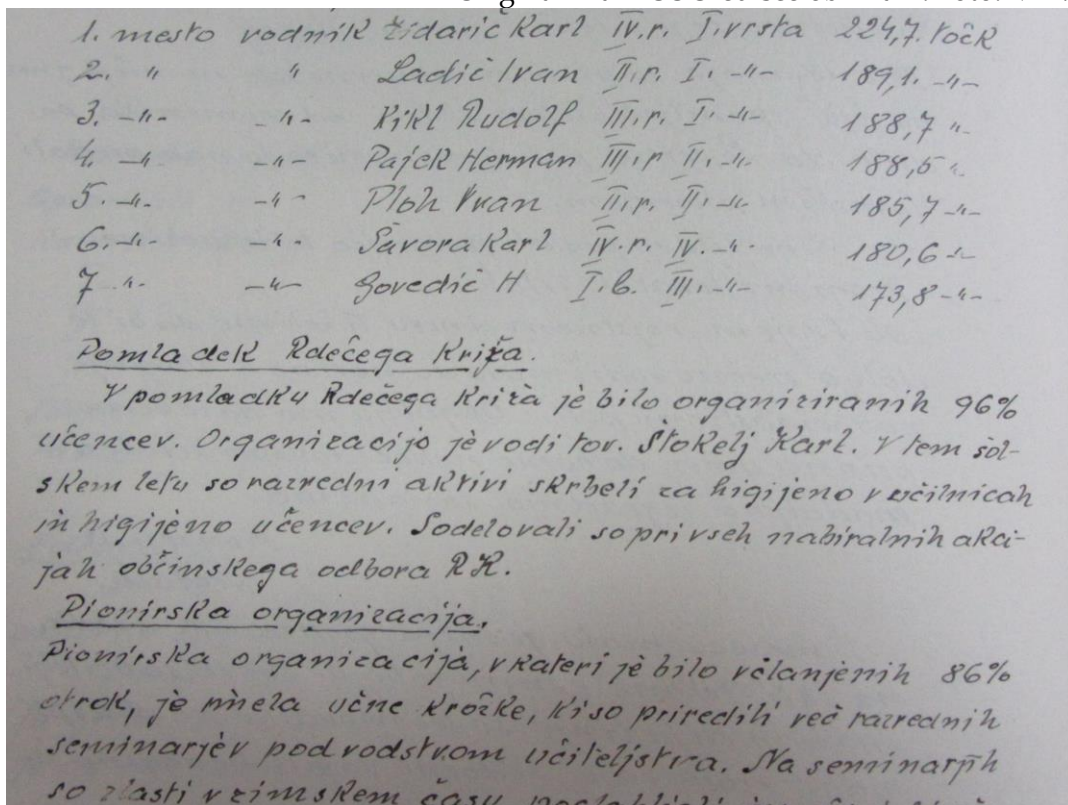 1. mesto vodnik Židarič Karl IV.r. I.vrsta 224,7. točk
2. " " Ladič Ivan II.r. I. -"- 189,1. -"-
3. -"- -"- Kikl Rudolf III.r. I. -"- 188,7 "-
4. -"- -"- Pajek Herman III.r II. -"- 188,5 "-
5. -"- -"- Ploh Ivan II.r. II. -"- 185,7 -"-
6. -"- -"- Savora Karl IV.r. IV. -"- 180,6 -"-
7 -"- -"- Govedič H I.b. III. -"- 173,8 -"-
Pomladek Rdečega Križa.
V pomladku Rdečega križa je bilo organiziranih 96%
učencev. Organizacijo je vodi tov. Štokelj Karl. V tem šol-
skem letu so razredni aktivi skrbeli za higijeno v učilnicah
in higijeno učencev. Sodelovali so pri vseh nabiralnih akci-
jah občinskega odbora RK.
Pionirska organizacija.
Pionirska organizacija, v kateri je bilo včlanjenih 86%
otrok, je imela učne krožke, ki so priredili več razrednih
seminarjev pod vodstvom učiteljstva. Na seminarjih
so zlasti v zimskem času